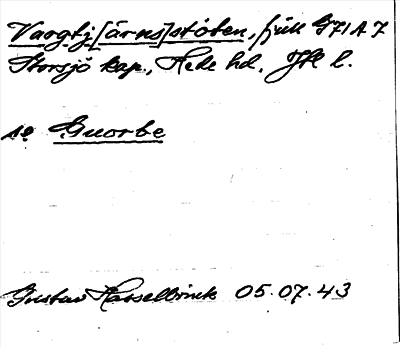 Vargtj[ärns]stöten, fjäll G71A7
Storsjö kap., Hede hd, Jtl l.
se Guorbe
Gustav Hasselbrink 05.07.43